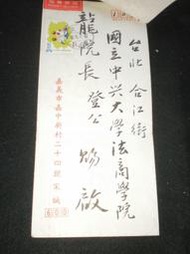 台北 合江街
國立中兴大學法商學院
龍院長 登公 賜啟
嘉義市嘉中新村二十四號宋緘